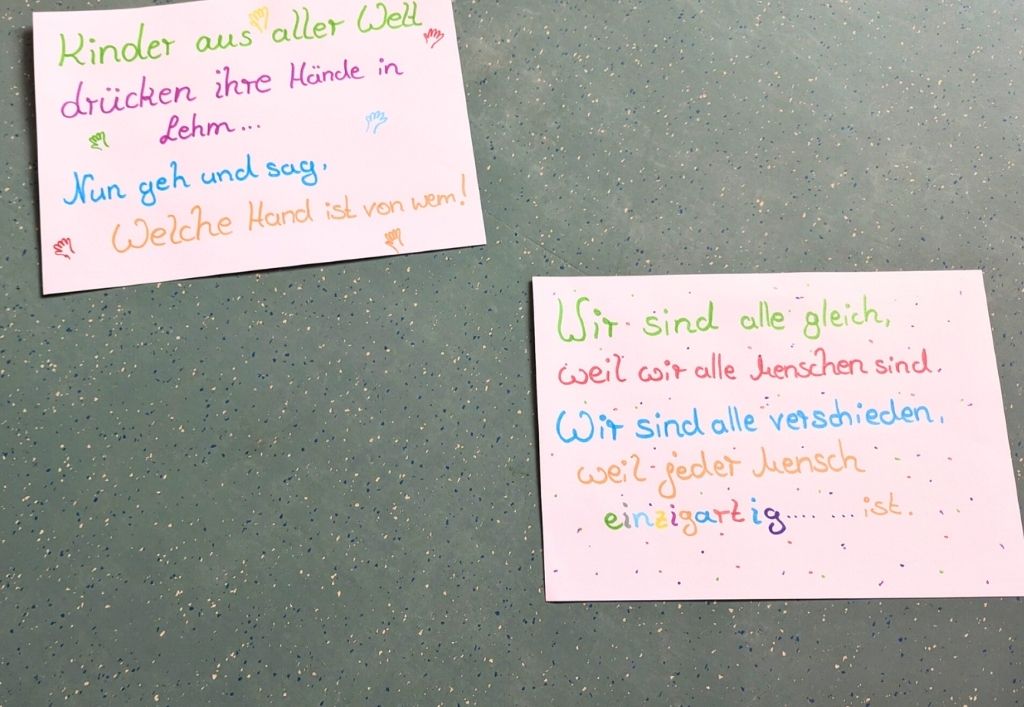 Kinder aus aller Welt
drücken ihre Hände in
Lehm...
Nun geh und sag,
Welche Hand ist von wem!
Wir sind alle gleich,
weil wir alle Menschen sind.
Wir sind alle verschieden,
weil jeder Mensch
einzigartig........ ist.